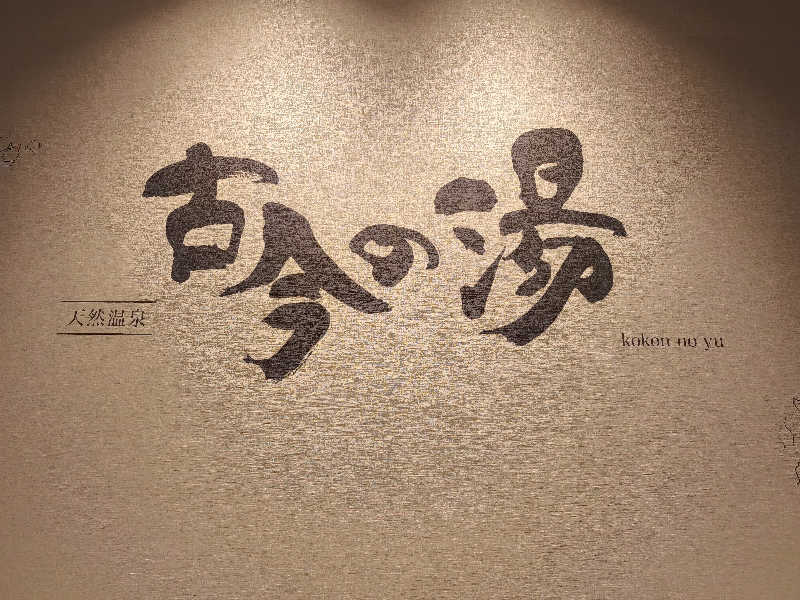 古今の湯
天然温泉
kokon no yu